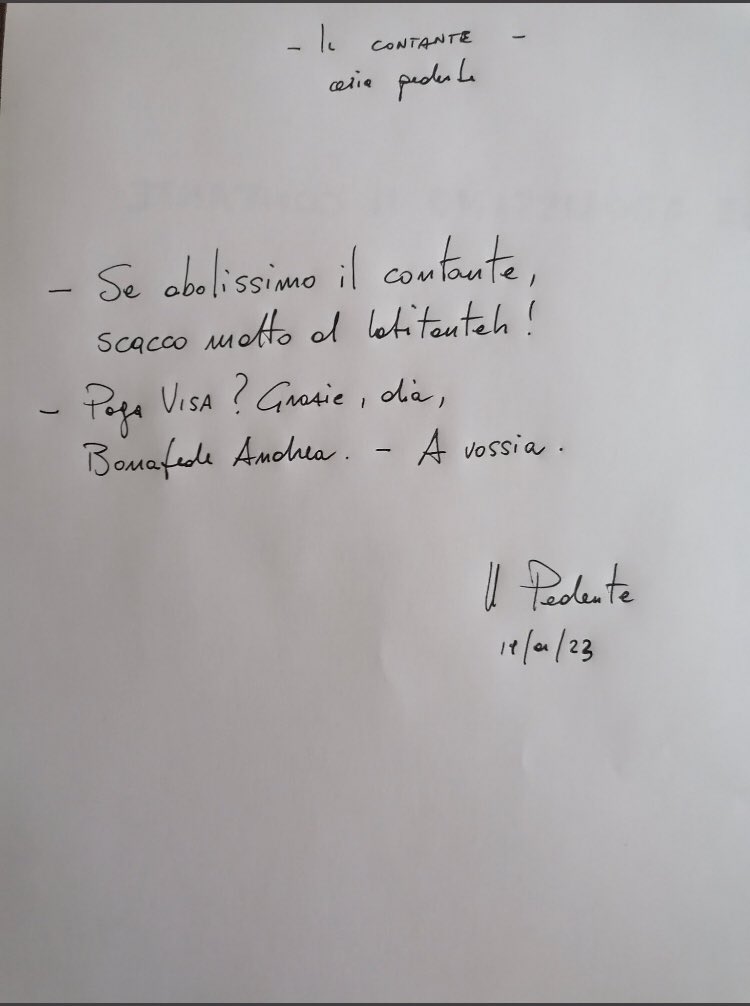 - IL CONTANTE -
ossia pedante
- Se abolissimo il contante,
scacco matto al latitanteh!
- Paga VISA? Grazie, dia,
Bonafede Andrea. - A vossia.
Il Pedante
19/01/23